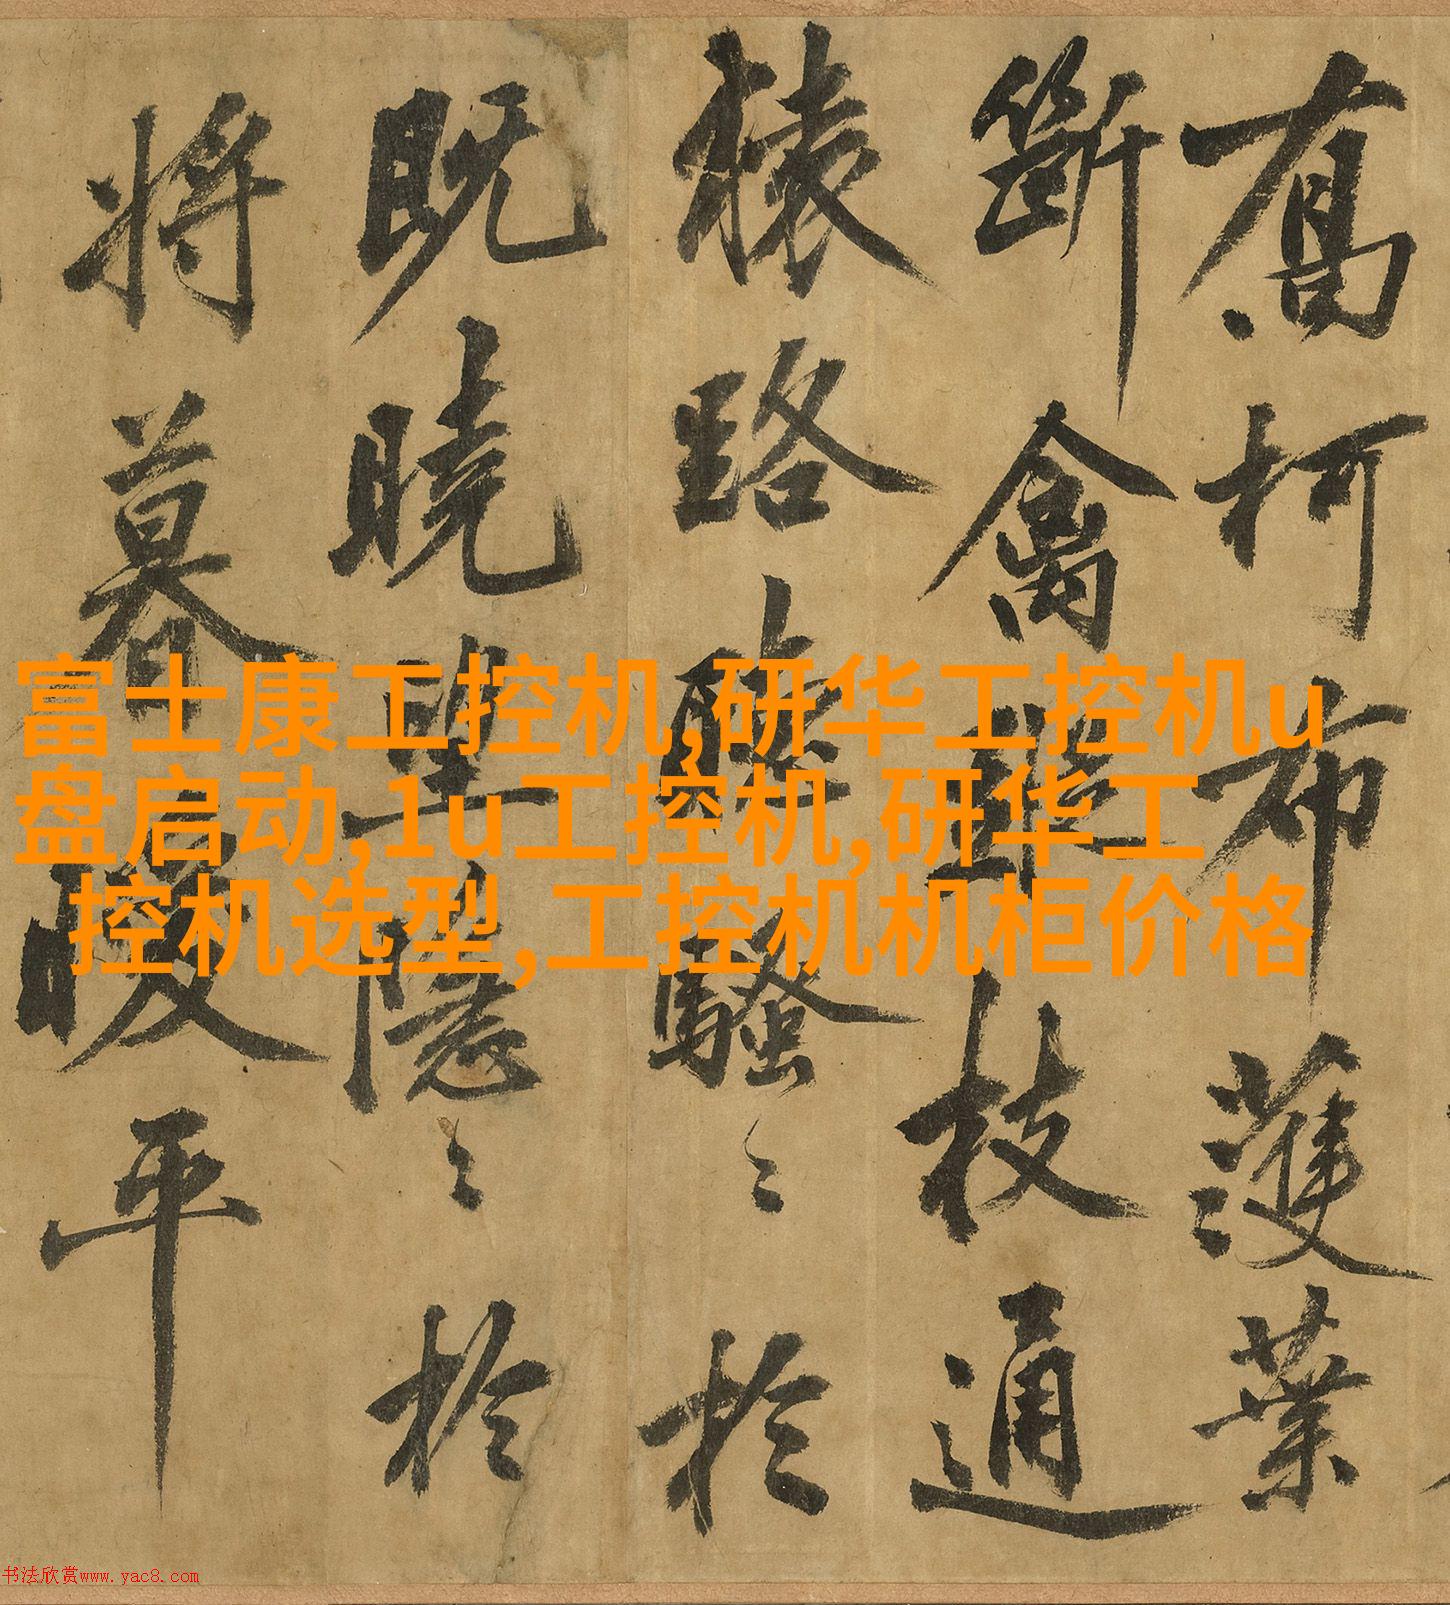 喬柯布濩葉
斷禽枝通
猿路騷〻於
既曉望隱〻於
將暮暖平
富士康工控机,研华工控机u
盘启动,1u工控机,研华工
控机选型,工控机机柜价格
书法欣赏www.yac8.com